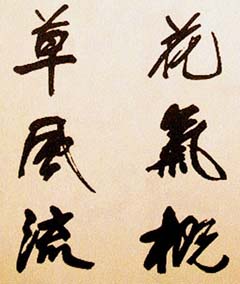 花氣概
草風流